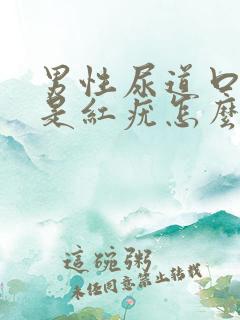 男性尿道口
是紅疣怎麼
這碗粥
未经同意禁止转载